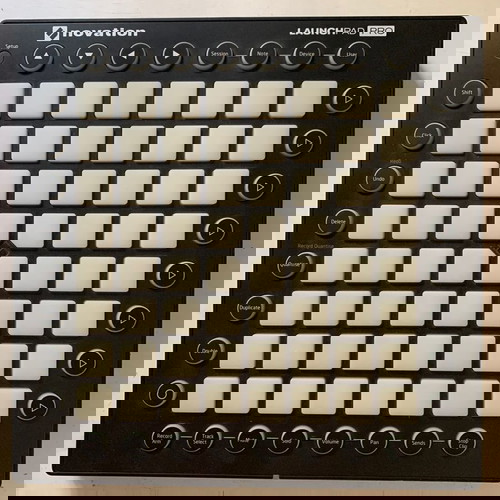 novation
LAUNCHPAD PRO
Setup
Session
Note
Device
User
Shift
Click
Undo
Delete
Record Quantise
Quantise
Duplicate
Double
Record Arm
Track Select
Mute
Solo
Volume
Pan
Sends
Stop Clip